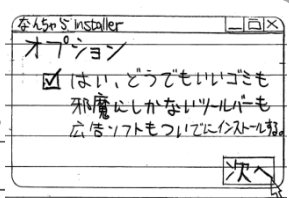 なんちゃら installer
オプション
はい、どうでもいいゴミも
邪魔にしかないツールバーも
広告ソフトもついでにインストールする。
次へ